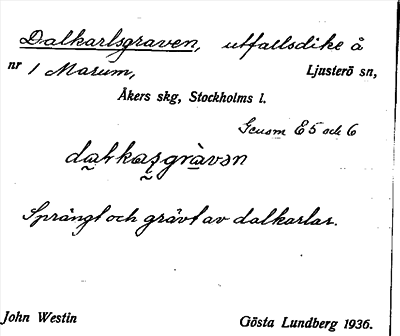 Dalkarlsgraven, utfallsdike å
nr 1 Marum, Ljusterö sn,
Åkers skg, Stockholms l.
Genom E5 och 6
dalkasgràvən
Sprängt och grävt av dalkarlar.
John Westin Gösta Lundberg 1936.